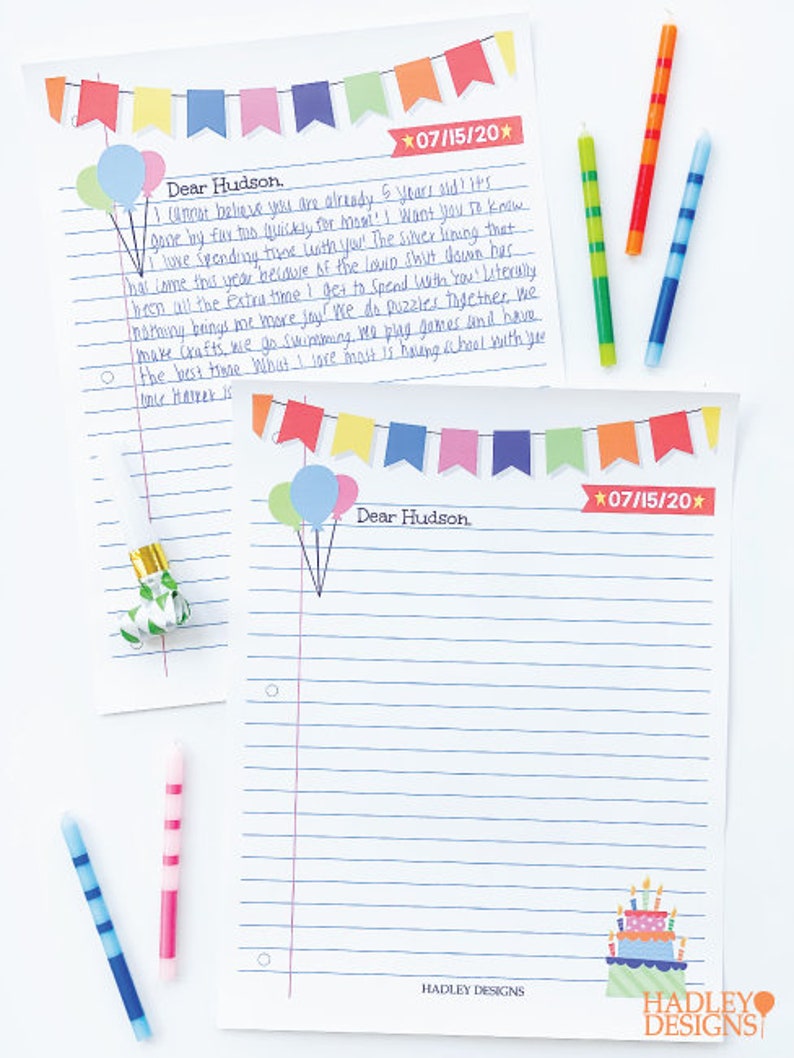 07/15/20
Dear Hudson,
I cannot believe you are already 5 years old! It's
gone by far too quickly for mom! I want you to know
I love spending time with you! The silver lining that
has come this year because of the covid shut down has
been all the extra time I get to spend with you! Literally
nothing brings me more joy! We do puzzles together, we
make crafts, we go swimming, we play games and have
the best time. What I love most is having school with you
once Harker is
07/15/20
Dear Hudson,
HADLEY DESIGNS
HADLEY
DESIGNS